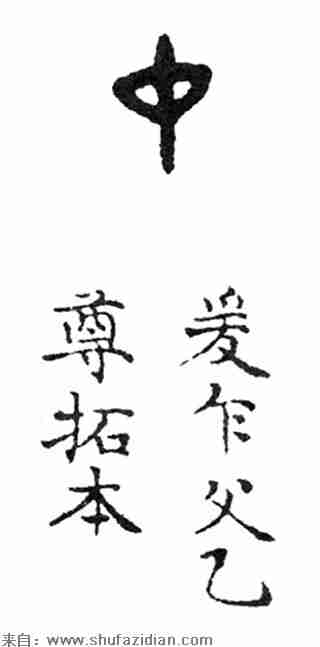 中
爰乍父乙
尊拓本
来自：www.shufazidian.com